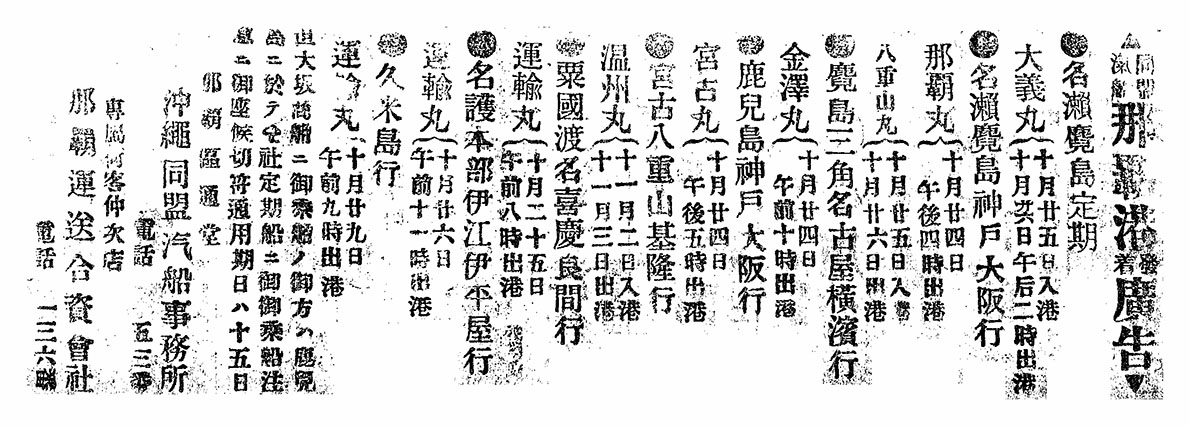 同盟汽船 那覇港發着廣告
●名瀨鹿兒島定期
大義丸 十月廿五日入港
十月廿六日午后二時出港
●名瀨鹿兒島神戸大阪行
那覇丸 十月廿四日
午後四時出港
八重山丸 十月廿五日入港
十月廿六日出港
●鹿兒島三角名古屋橫濱行
金澤丸 十月廿四日
午前十時出港
●鹿兒島神戸大阪行
宮古丸 十月廿四日
午後五時出港
●宮古八重山基隆行
温州丸 十一月二日入港
十一月三日出港
●粟國渡名喜慶良間行
運輸丸 十月二十五日
午前八時出港
●名護本部伊江伊平屋行
運輸丸 十月廿六日
午前十一時出港
●久米島行
運輸丸 十月廿九日
午前九時出港
大坂商船ニ御乘船ノ御方ハ鹿兒
島ニ於テ全社定期船ニ御乘船注
意ニ御座候切符通用期日ハ十五日
那覇區通堂
沖繩同盟汽船事務所
電話 五三番
專屬荷客仲次店
那覇運送合資會社
電話 一三六番